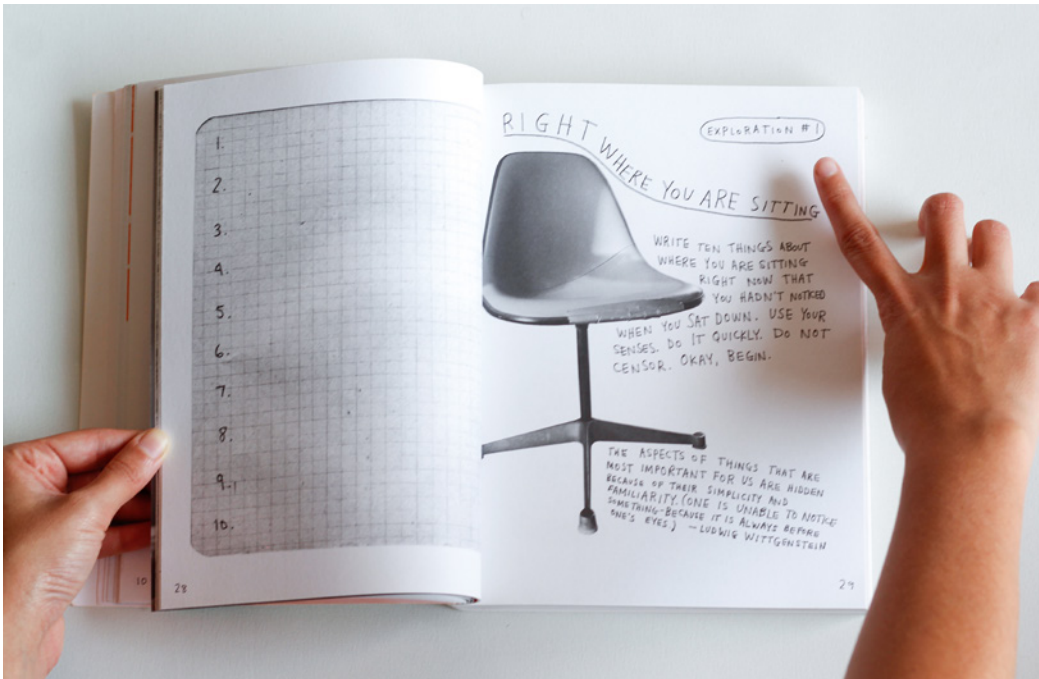 1.
2.
3.
4.
5.
6.
7.
8.
9.
10.
10
28
RIGHT WHERE YOU ARE SITTING
EXPLORATION #1
WRITE TEN THINGS ABOUT
WHERE YOU ARE SITTING
RIGHT NOW THAT
YOU HADN'T NOTICED
WHEN YOU SAT DOWN. USE YOUR
SENSES. DO IT QUICKLY. DO NOT
CENSOR. OKAY, BEGIN.
THE ASPECTS OF THINGS THAT ARE
MOST IMPORTANT FOR US ARE HIDDEN
BECAUSE OF THEIR SIMPLICITY AND
FAMILIARITY. (ONE IS UNABLE TO NOTICE
SOMETHING-BECAUSE IT IS ALWAYS BEFORE
ONE'S EYES.) —LUDWIG WITTGENSTEIN
29